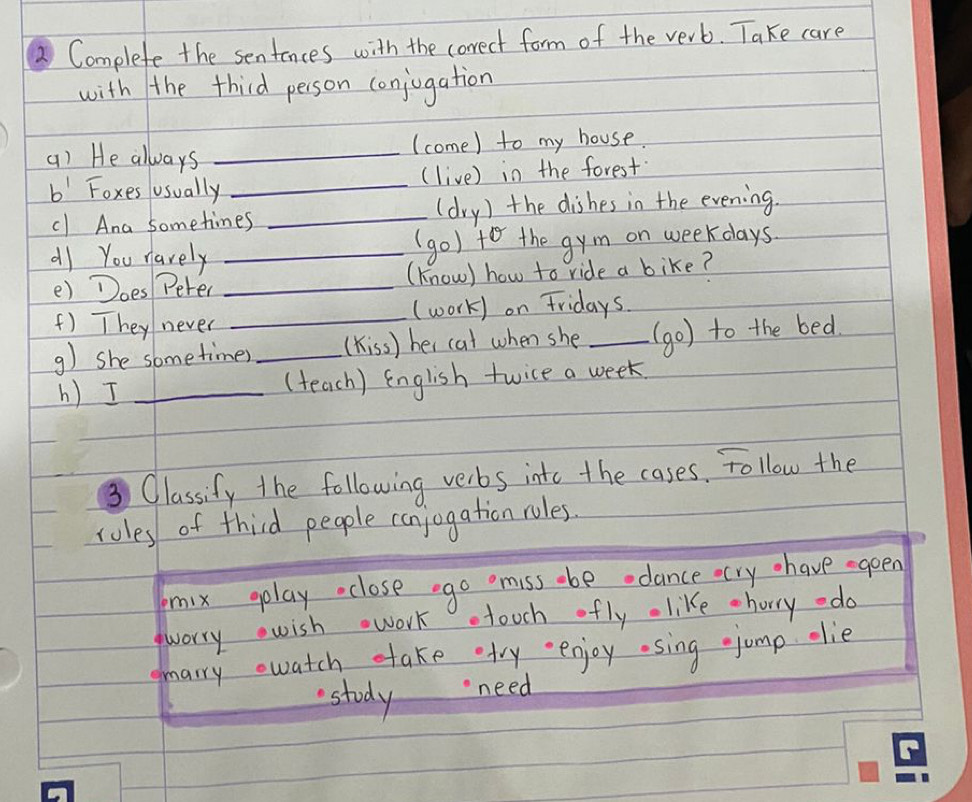 2 Complete the sentences with the correct form of the verb. Take care
with the third person conjugation
a) He always __________ (come) to my house.
b) Foxes usually __________ (live) in the forest.
c) Ana sometimes __________ (dry) the dishes in the evening.
d) You rarely __________ (go) to the gym on weekdays.
e) Does Peter __________ (know) how to ride a bike?
f) They never __________ (work) on Fridays.
g) She sometimes _____ (kiss) her cat when she ____ (go) to the bed.
h) I ________ (teach) English twice a week.
3 Classify the following verbs into the cases. Follow the
rules of third people conjogation rules.
•mix •play •close •go •miss •be •dance •cry •have •open
•worry •wish •work •touch •fly •like •hurry •do
•marry •watch •take •try •enjoy •sing •jump •lie
•study •need